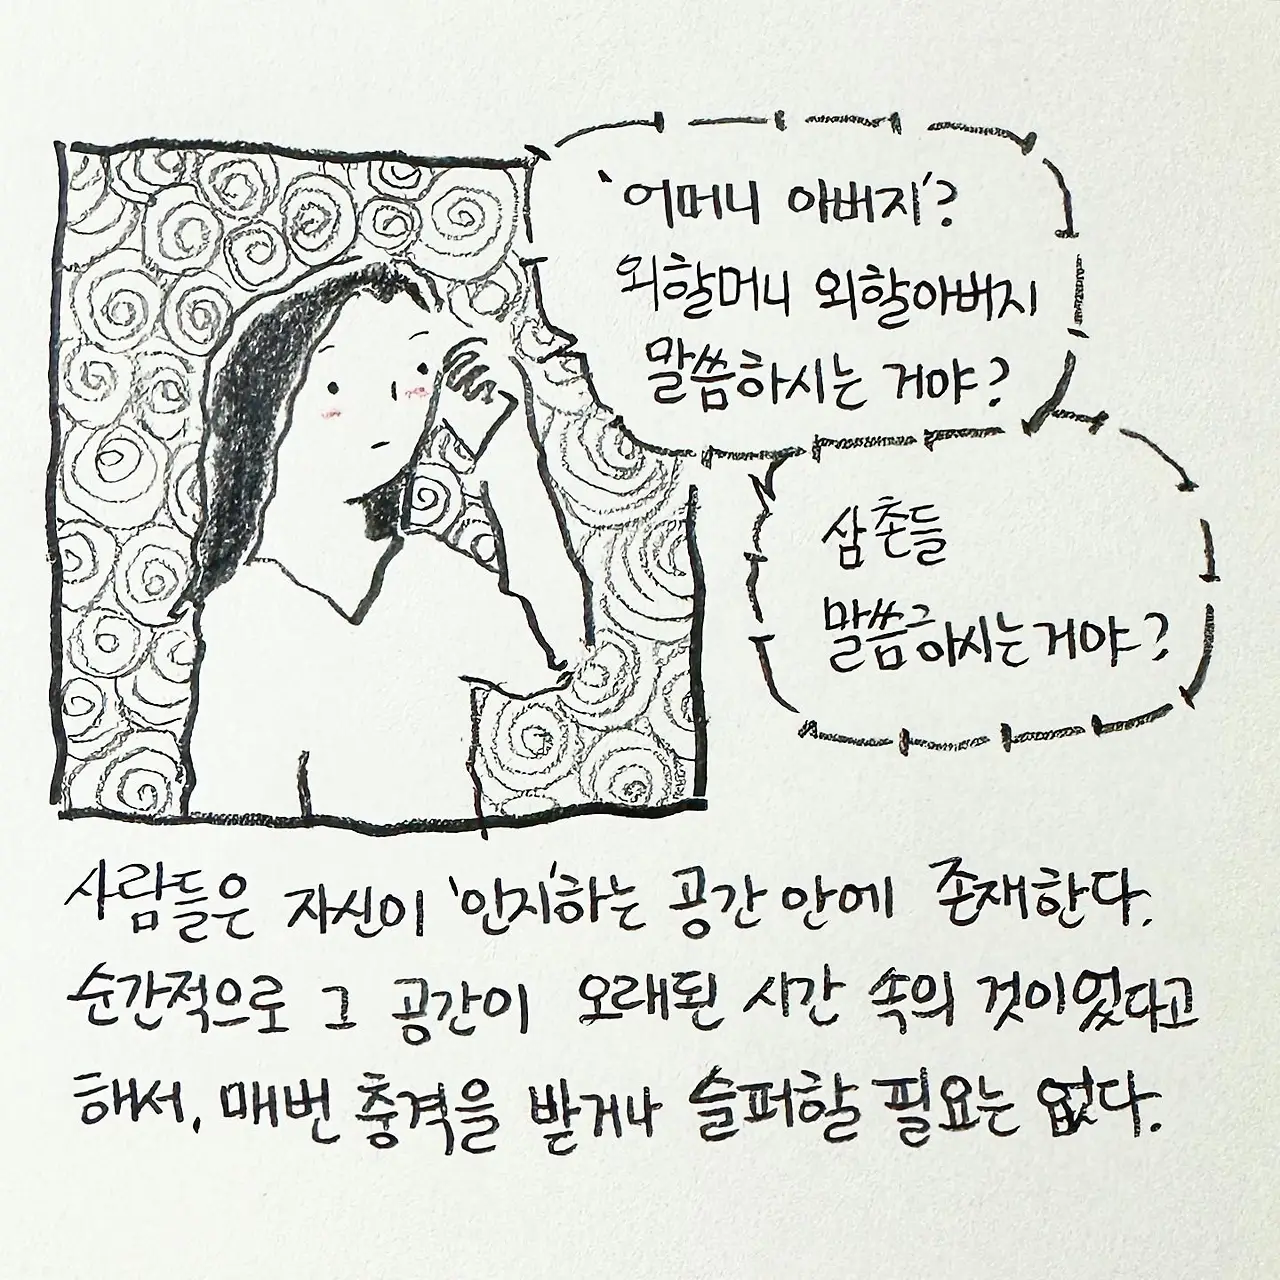 '어머니 아버지'?
외할머니 외할아버지
말씀하시는 거야?
삼촌들
말씀하시는거야?
사람들은 자신이 '인지'하는 공간 안에 존재한다.
순간적으로 그 공간이 오래된 시간 속의 것이었다고
해서, 매번 충격을 받거나 슬퍼할 필요는 없다.